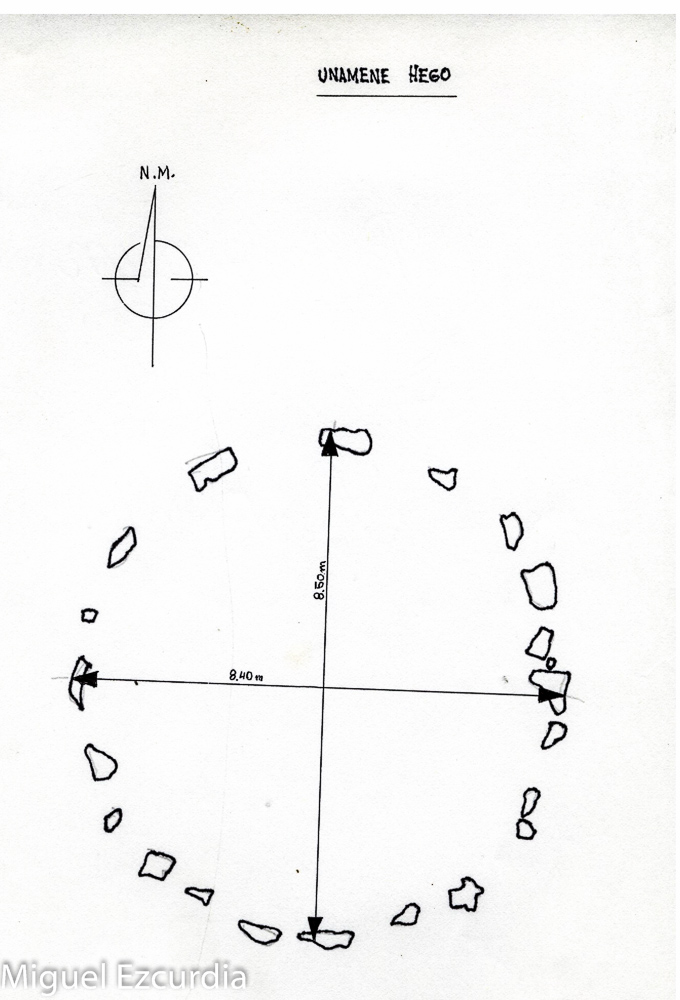 UNAMENE HEGO
N.M.
8.50m
8.40m
Miguel Ezcurdia